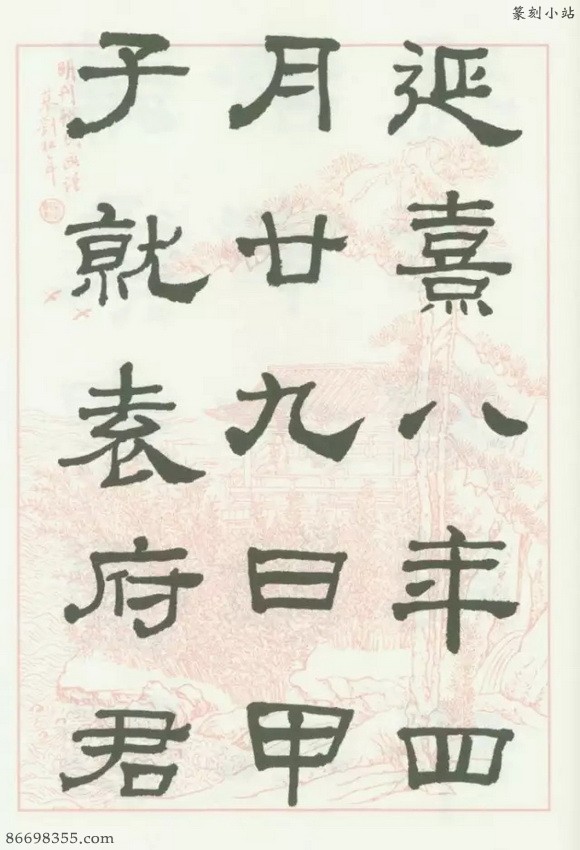 篆刻小站
延熹八年四
月廿九日甲
子就袁府君
86698355.com